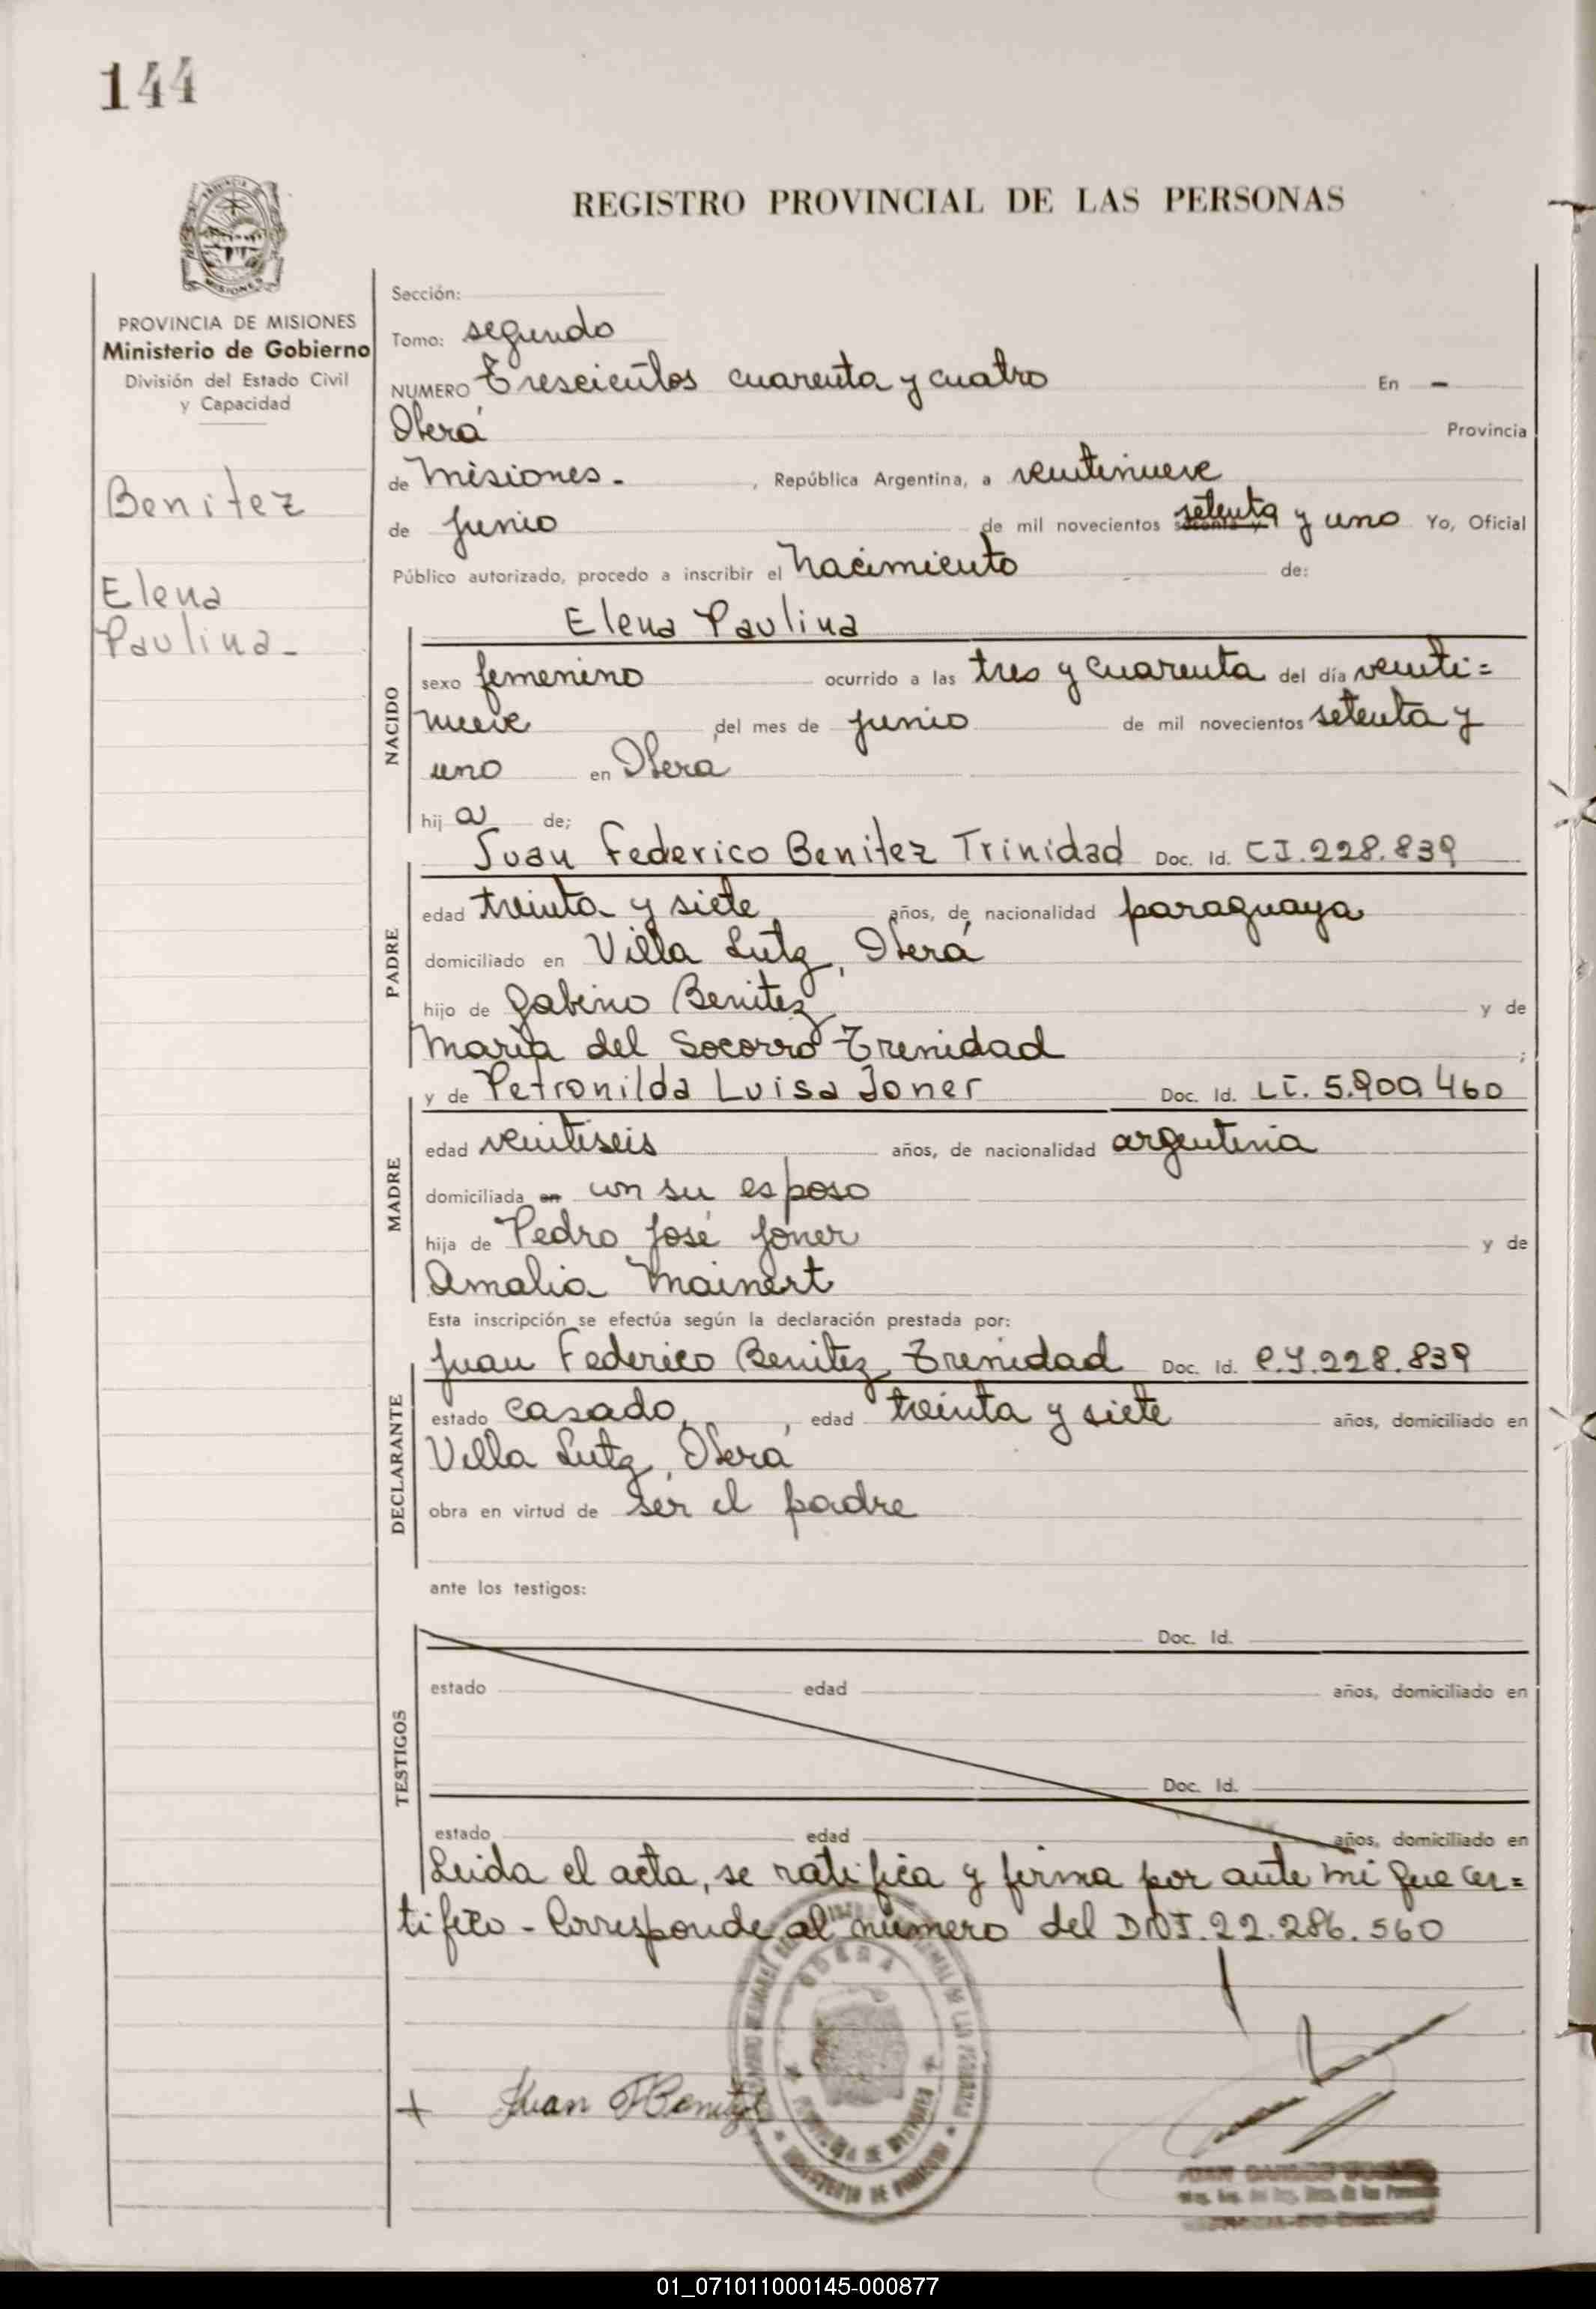 144
REGISTRO PROVINCIAL DE LAS PERSONAS
PROVINCIA DE MISIONES
Ministerio de Gobierno
División del Estado Civil
y Capacidad
Benitez
Elena
Paulina-
Sección:
Tomo: segundo
NUMERO Trescientos cuarenta y cuatro En -
Oberá Provincia
de Misiones. , República Argentina, a veintinueve
de junio de mil novecientos setenta y uno Yo, Oficial
Público autorizado, procedo a inscribir el Nacimiento de:
NACIDO
Elena Paulina
sexo femenino ocurrido a las tres y cuarenta del día veinti=
nueve del mes de junio de mil novecientos setenta y
uno en Obera
hij a de;
Juan Federico Benitez Trinidad Doc. Id. CI.228.839
PADRE
edad treinta y siete años, de nacionalidad paraguaya
domiciliado en Villa Lutz, Oberá
hijo de Gabino Benitez y de
María del Socorro Trenidad ;
y de Petronilda Luisa Joner Doc. Id. LC. 5.900.460
MADRE
edad veintiseis años, de nacionalidad argentina
domiciliada en con su esposo
hija de Pedro José Joner y de
Amalia Mainert
Esta inscripción se efectúa según la declaración prestada por:
Juan Federico Benitez Trenidad Doc. Id. C.I.228.839
DECLARANTE
estado casado, , edad treinta y siete años, domiciliado en
Villa Lutz, Oberá
obra en virtud de ser el padre
ante los testigos:
TESTIGOS
Doc. Id.
estado edad años, domiciliado en
Doc. Id.
estado edad años, domiciliado en
Leida el acta, se ratifica y firma por ante mi que cer=
tifico - Corresponde al número del DNI.22.286.560
OBERA
MINISTERIO DE GOBIERNO
Juan F Benitez
01_071011000145-000877